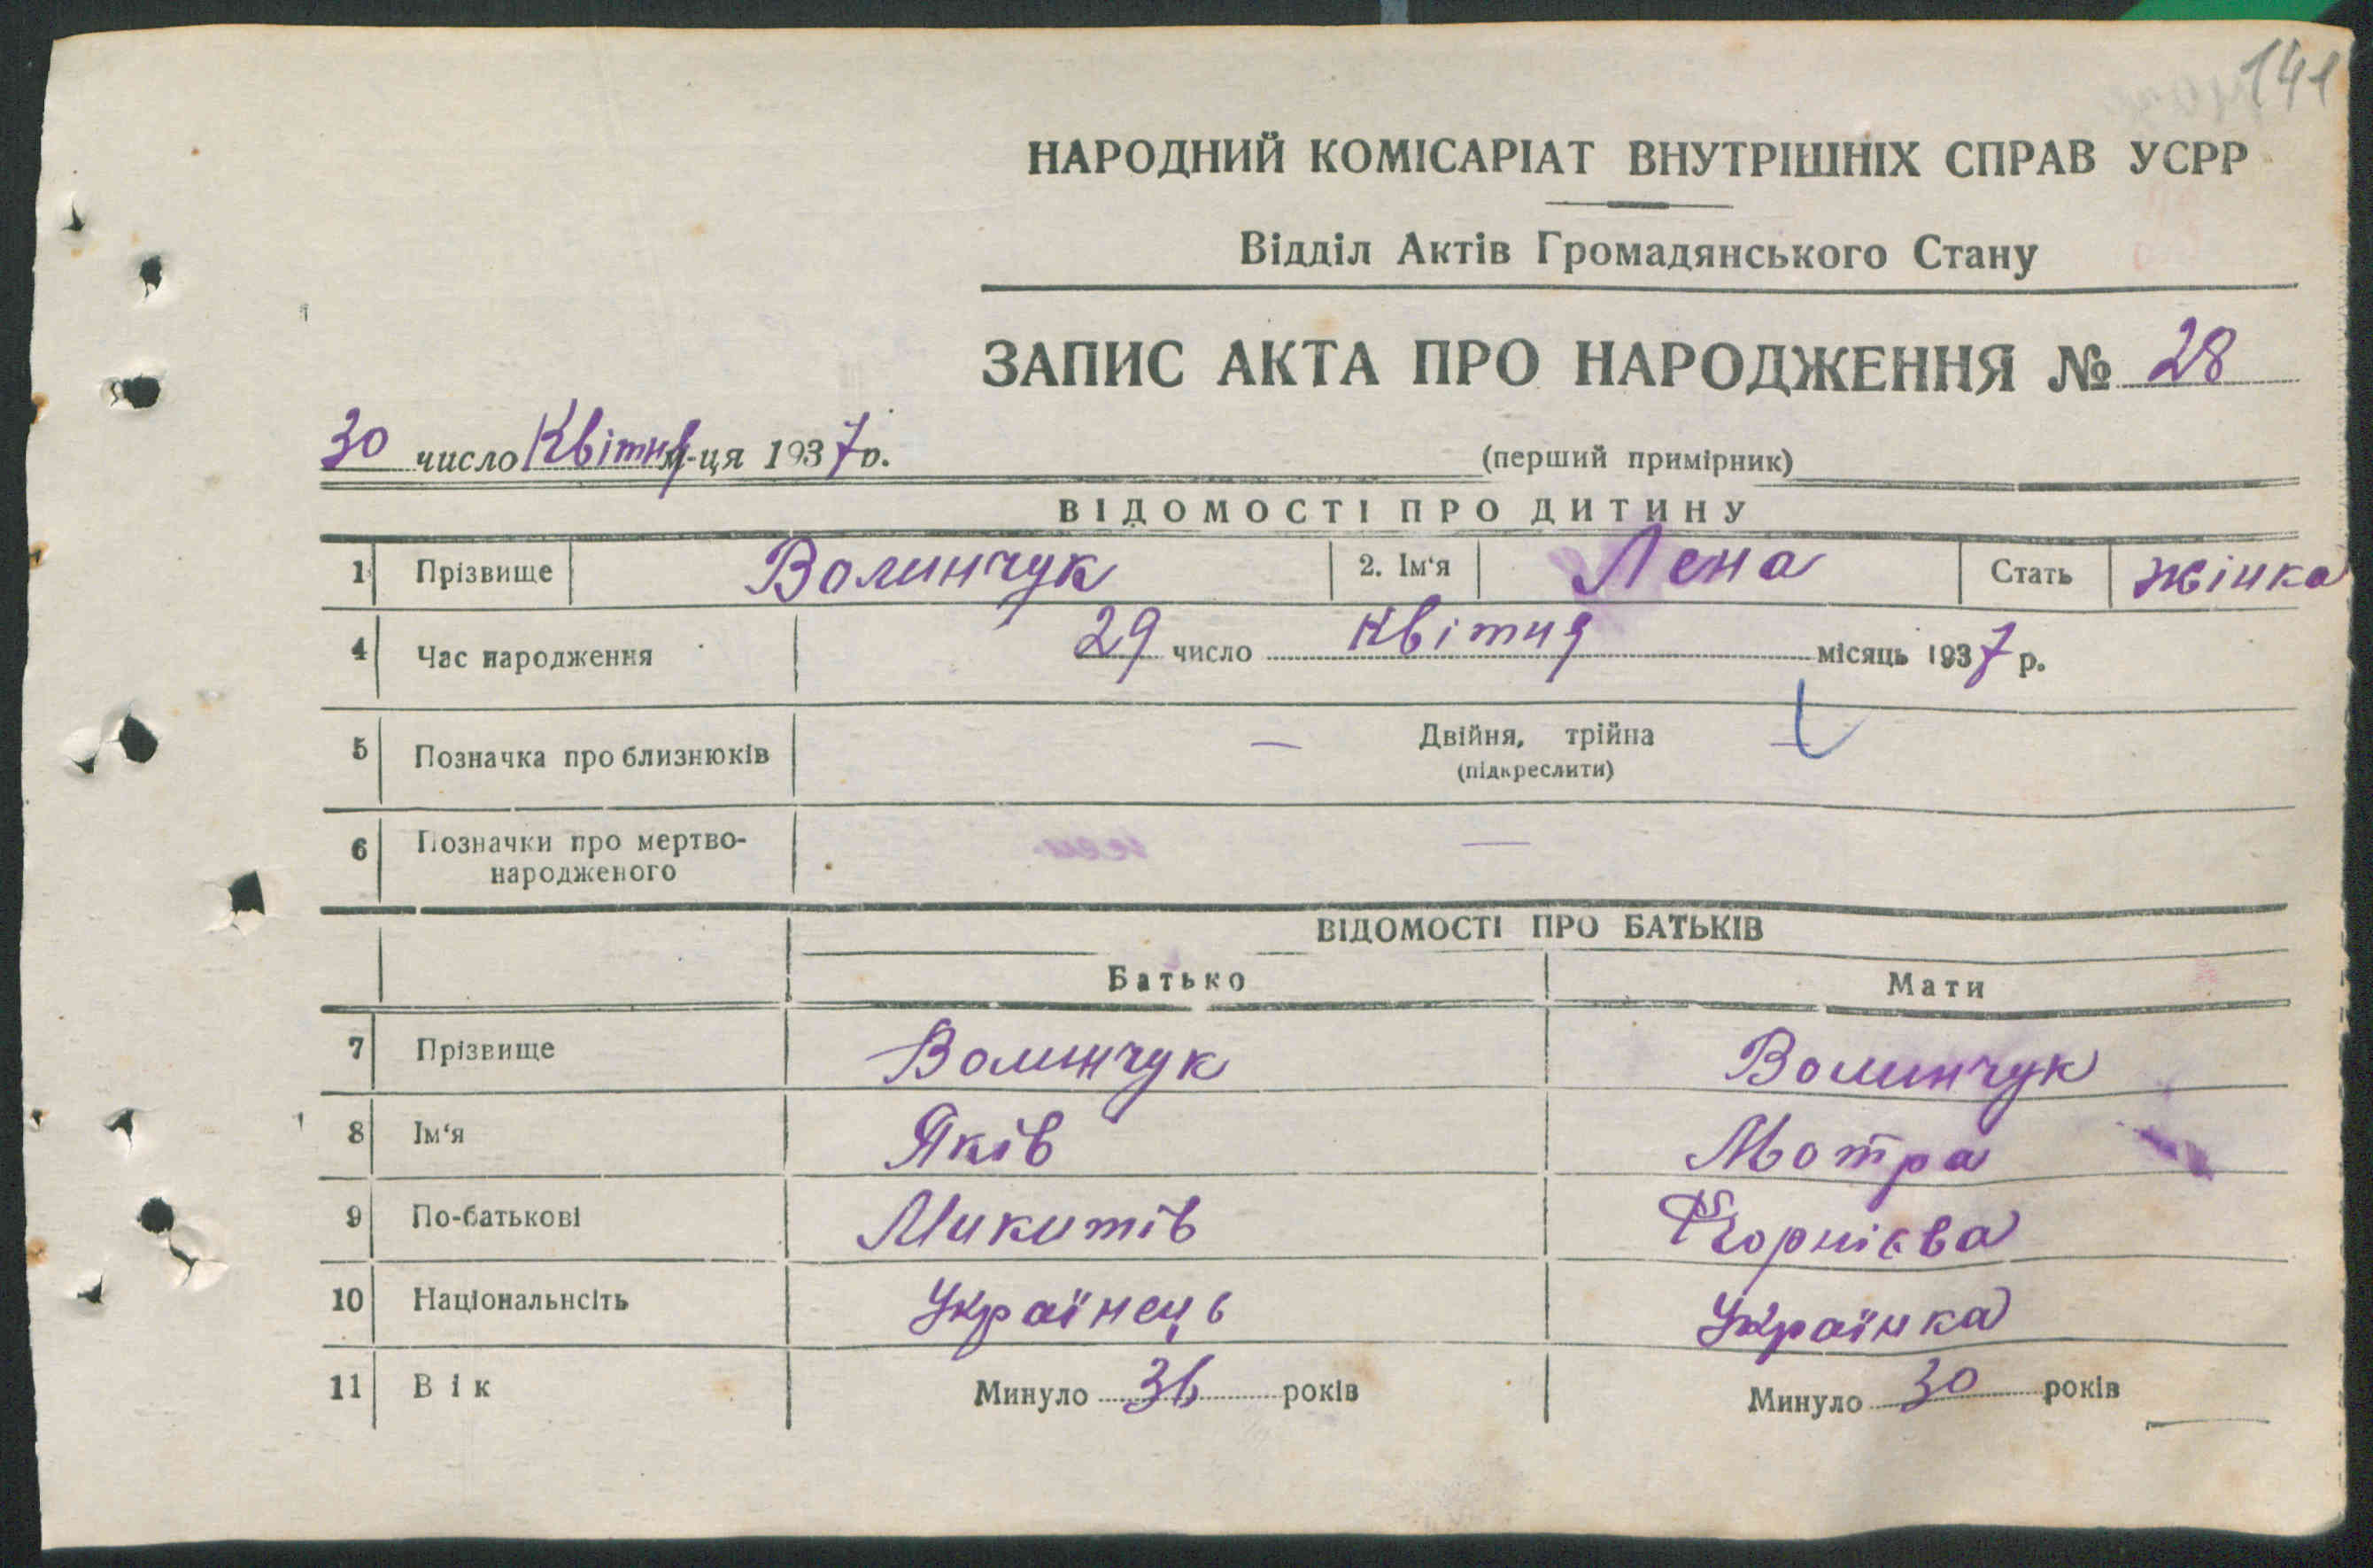 141
НАРОДНИЙ КОМІСАРІАТ ВНУТРІШНІХ СПРАВ УСРР
Відділ Актів Громадянського Стану
ЗАПИС АКТА ПРО НАРОДЖЕННЯ № 28
30 число Квітня м-ця 1937 р.
(перший примірник)
ВІДОМОСТІ ПРО ДИТИНУ
1 Прізвище Волинчук 2. Ім‘я Лена Стать жінка
4 Час народження 29 число квітня місяць 1937 р.
5 Позначка про близнюків — Двійня, трійна —
(підкреслити)
6 Позначки про мертво-
народженого —
ВІДОМОСТІ ПРО БАТЬКІВ
Батько Мати
7 Прізвище Волинчук Волинчук
8 Ім‘я Яків Мотра
9 По-батькові Микитів Корнієва
10 Національнсіть Українець Українка
11 Вік Минуло 36 років Минуло 30 років